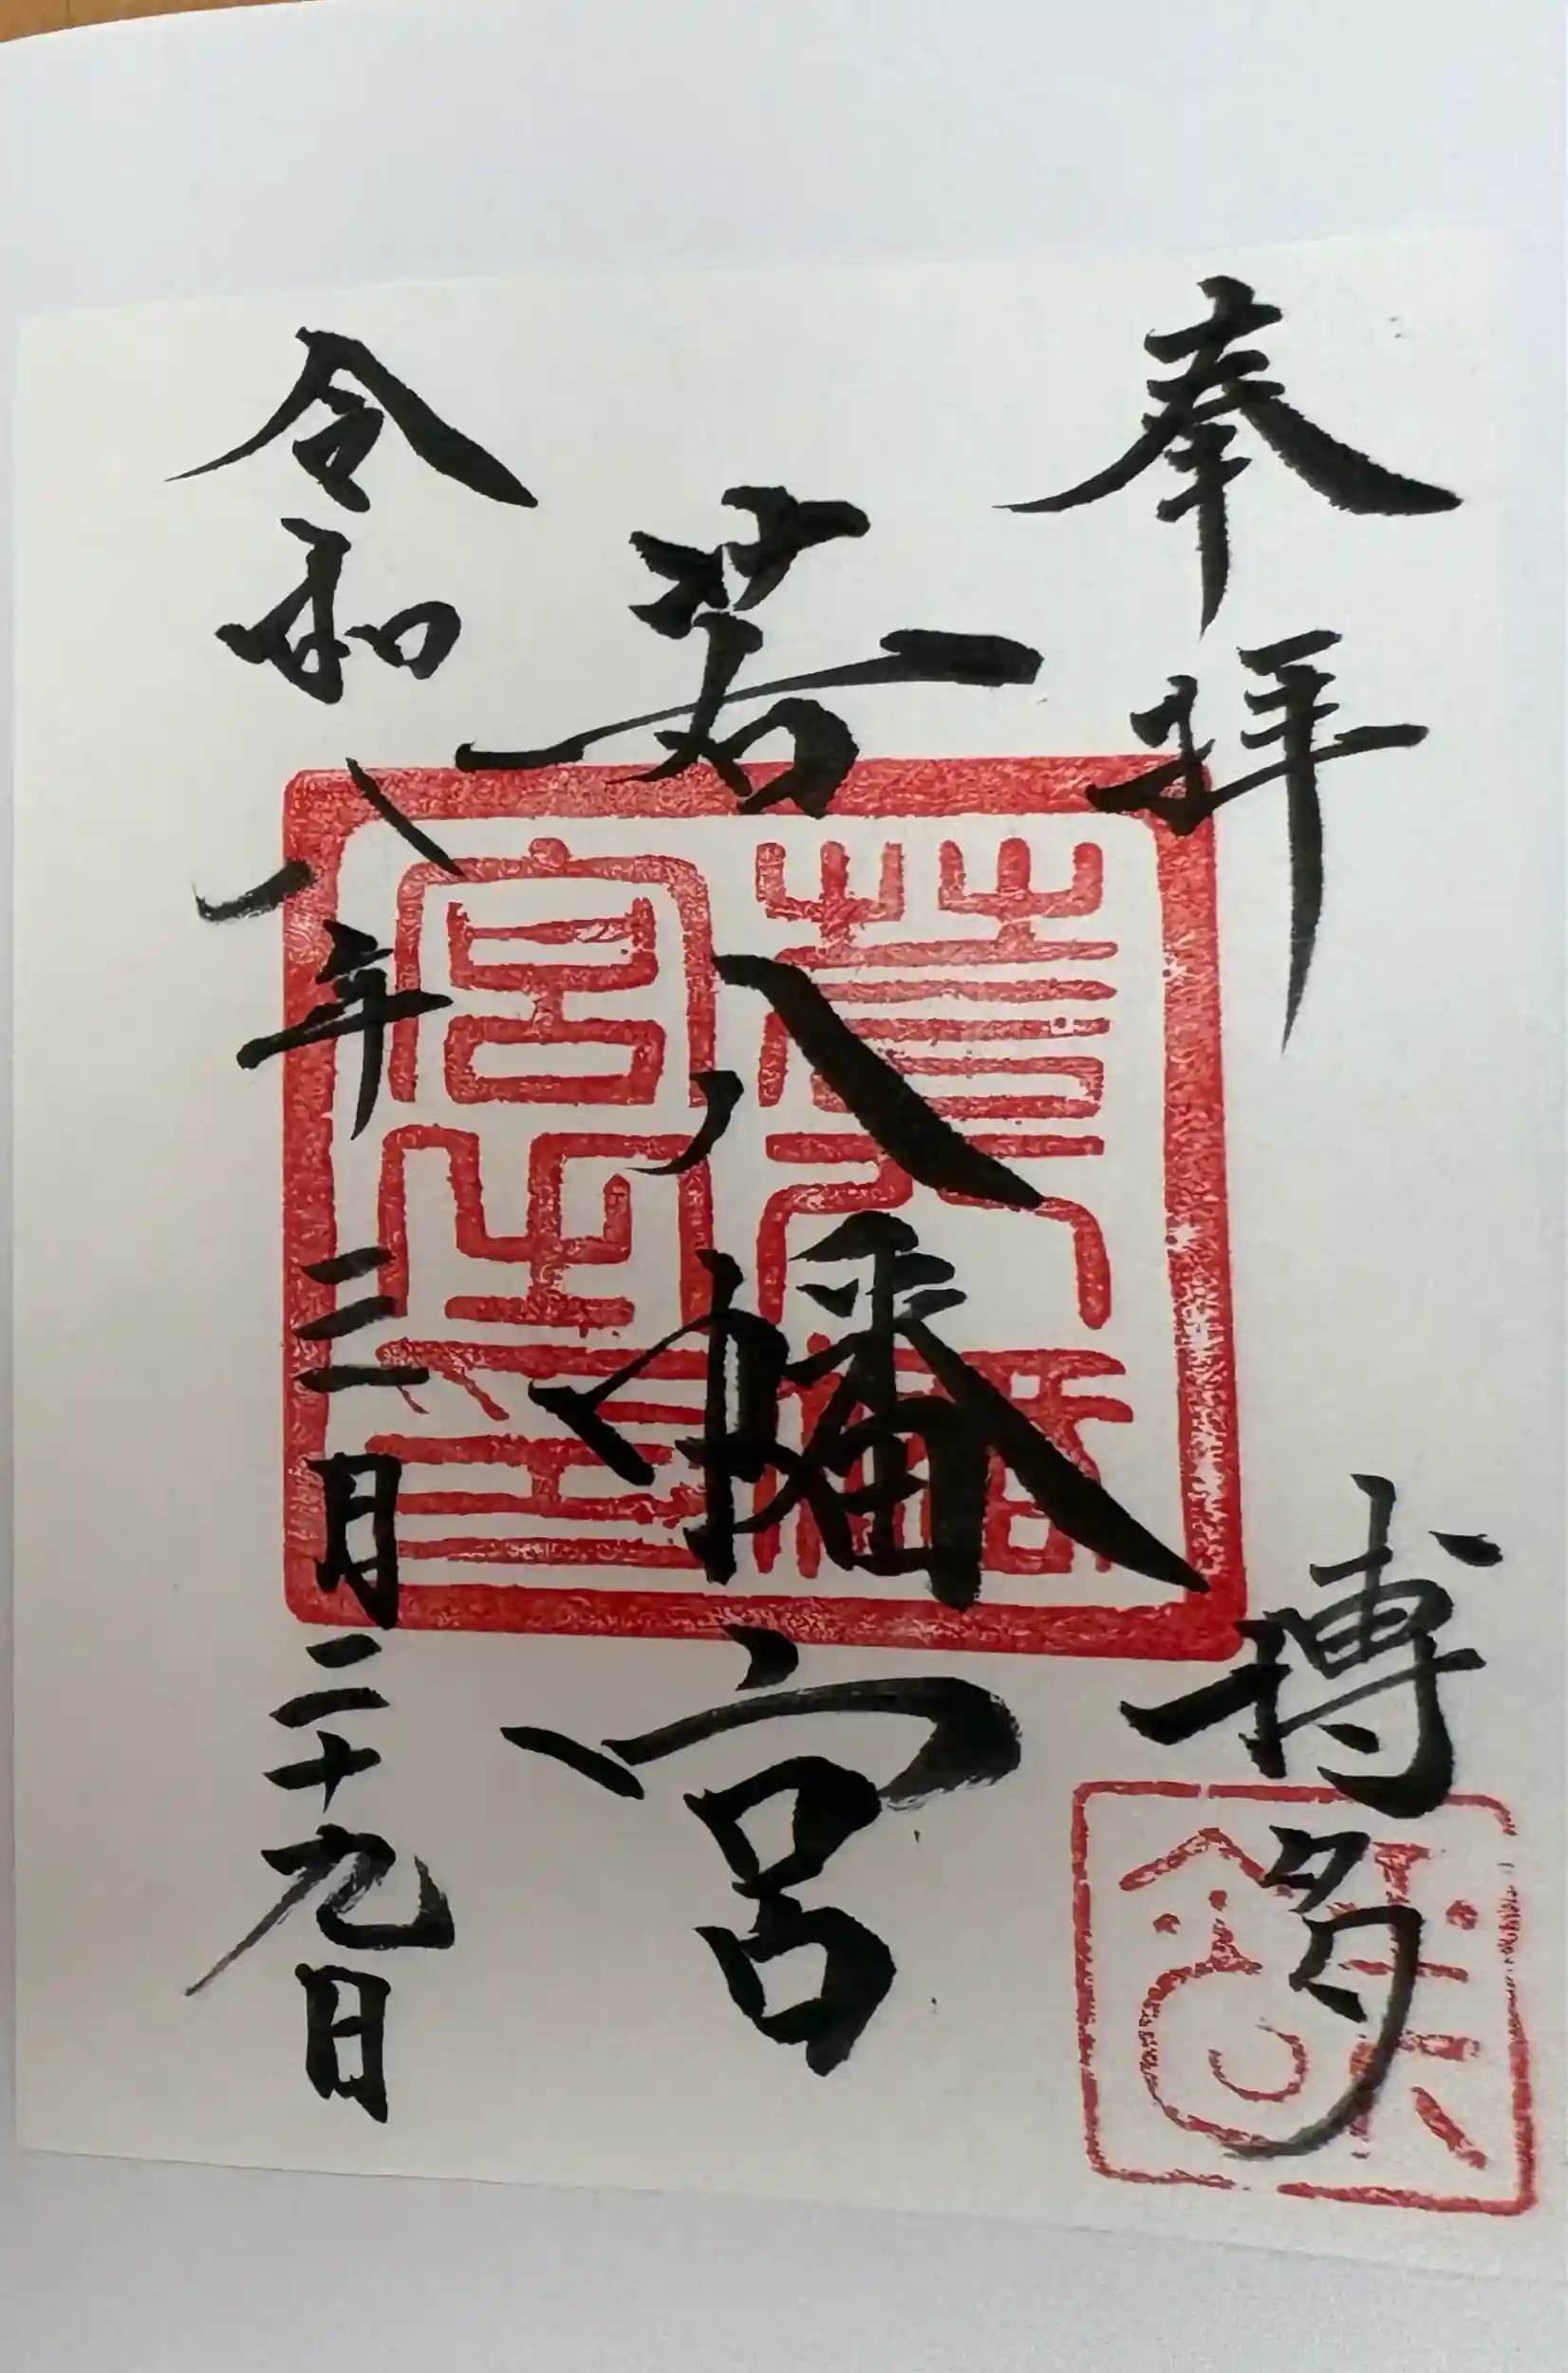 奉拝
博多
若八幡宮
若八幡宮之印
令和八年三月二十九日